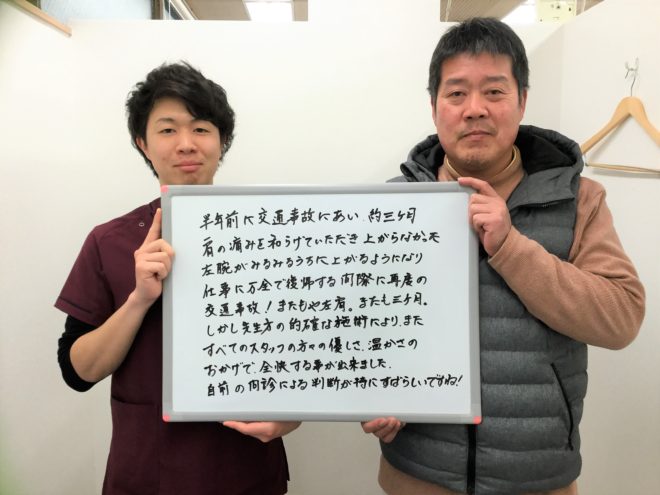 半年前に交通事故にあい、約三ヶ月
肩の痛みを和らげていただき 上がらなかった
左腕がみるみるうちに上がるようになり
仕事に万全で復帰する間際に再度の
交通事故！またもや左肩。またも三ヶ月。
しかし先生方の的確な施術により、また
すべてのスタッフの方々の優しさ、温かさの
おかげで、全快する事が出来ました。
自前の問診による判断が特にすばらしいですね！